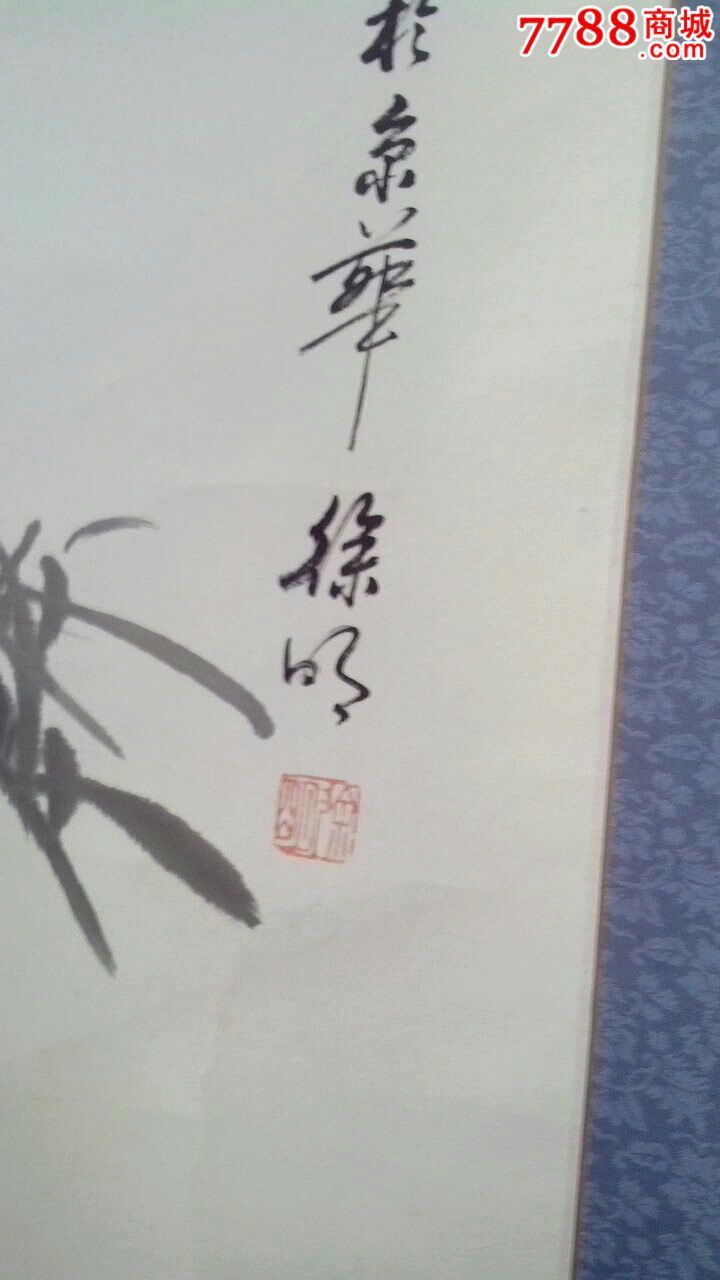 7788商城
.com
於京華
徐明
徐明